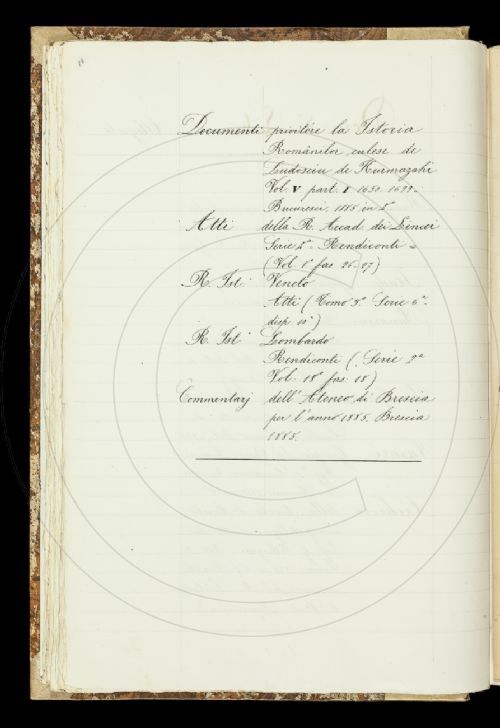 Documenti privitóre la Istoria
Românilor culese de
Eudosciu de Hurmuzaki
Vol. V part. I 1650. 1699.
Bucuresci 1885 in 4°
Atti della R. Accad. dei Lincei
Serie 4ª. Rendiconti =
(Vol. 1° fas. 26. 27)
R. Ist. Veneto
Atti (Tomo 3° Serie 6ª.
disp.
R. Ist. Lombardo
Rendiconti (Serie 2ª
Vol. 18° fas. 18)
Commentarj dell'Ateneo di Brescia
per l'anno 1885. Brescia
1885.